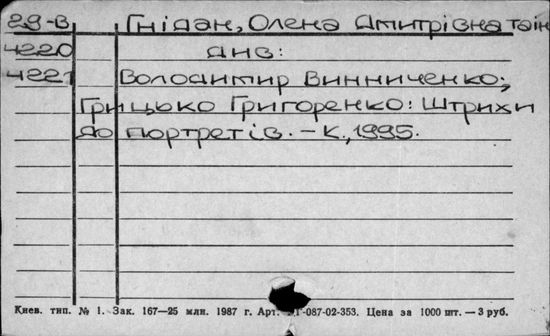 29-В Гнідан, Олена Дмитрівна та ін
4220 див:
4221 Володимир Винниченко;
Грицько Григоренко: Штрихи
до портретів. – К., 1995.
Киев. тип. № 1. Зак. 167—25 млн. 1987 г. Арт. -087-02-353. Цена за 1000 шт. — 3 руб.